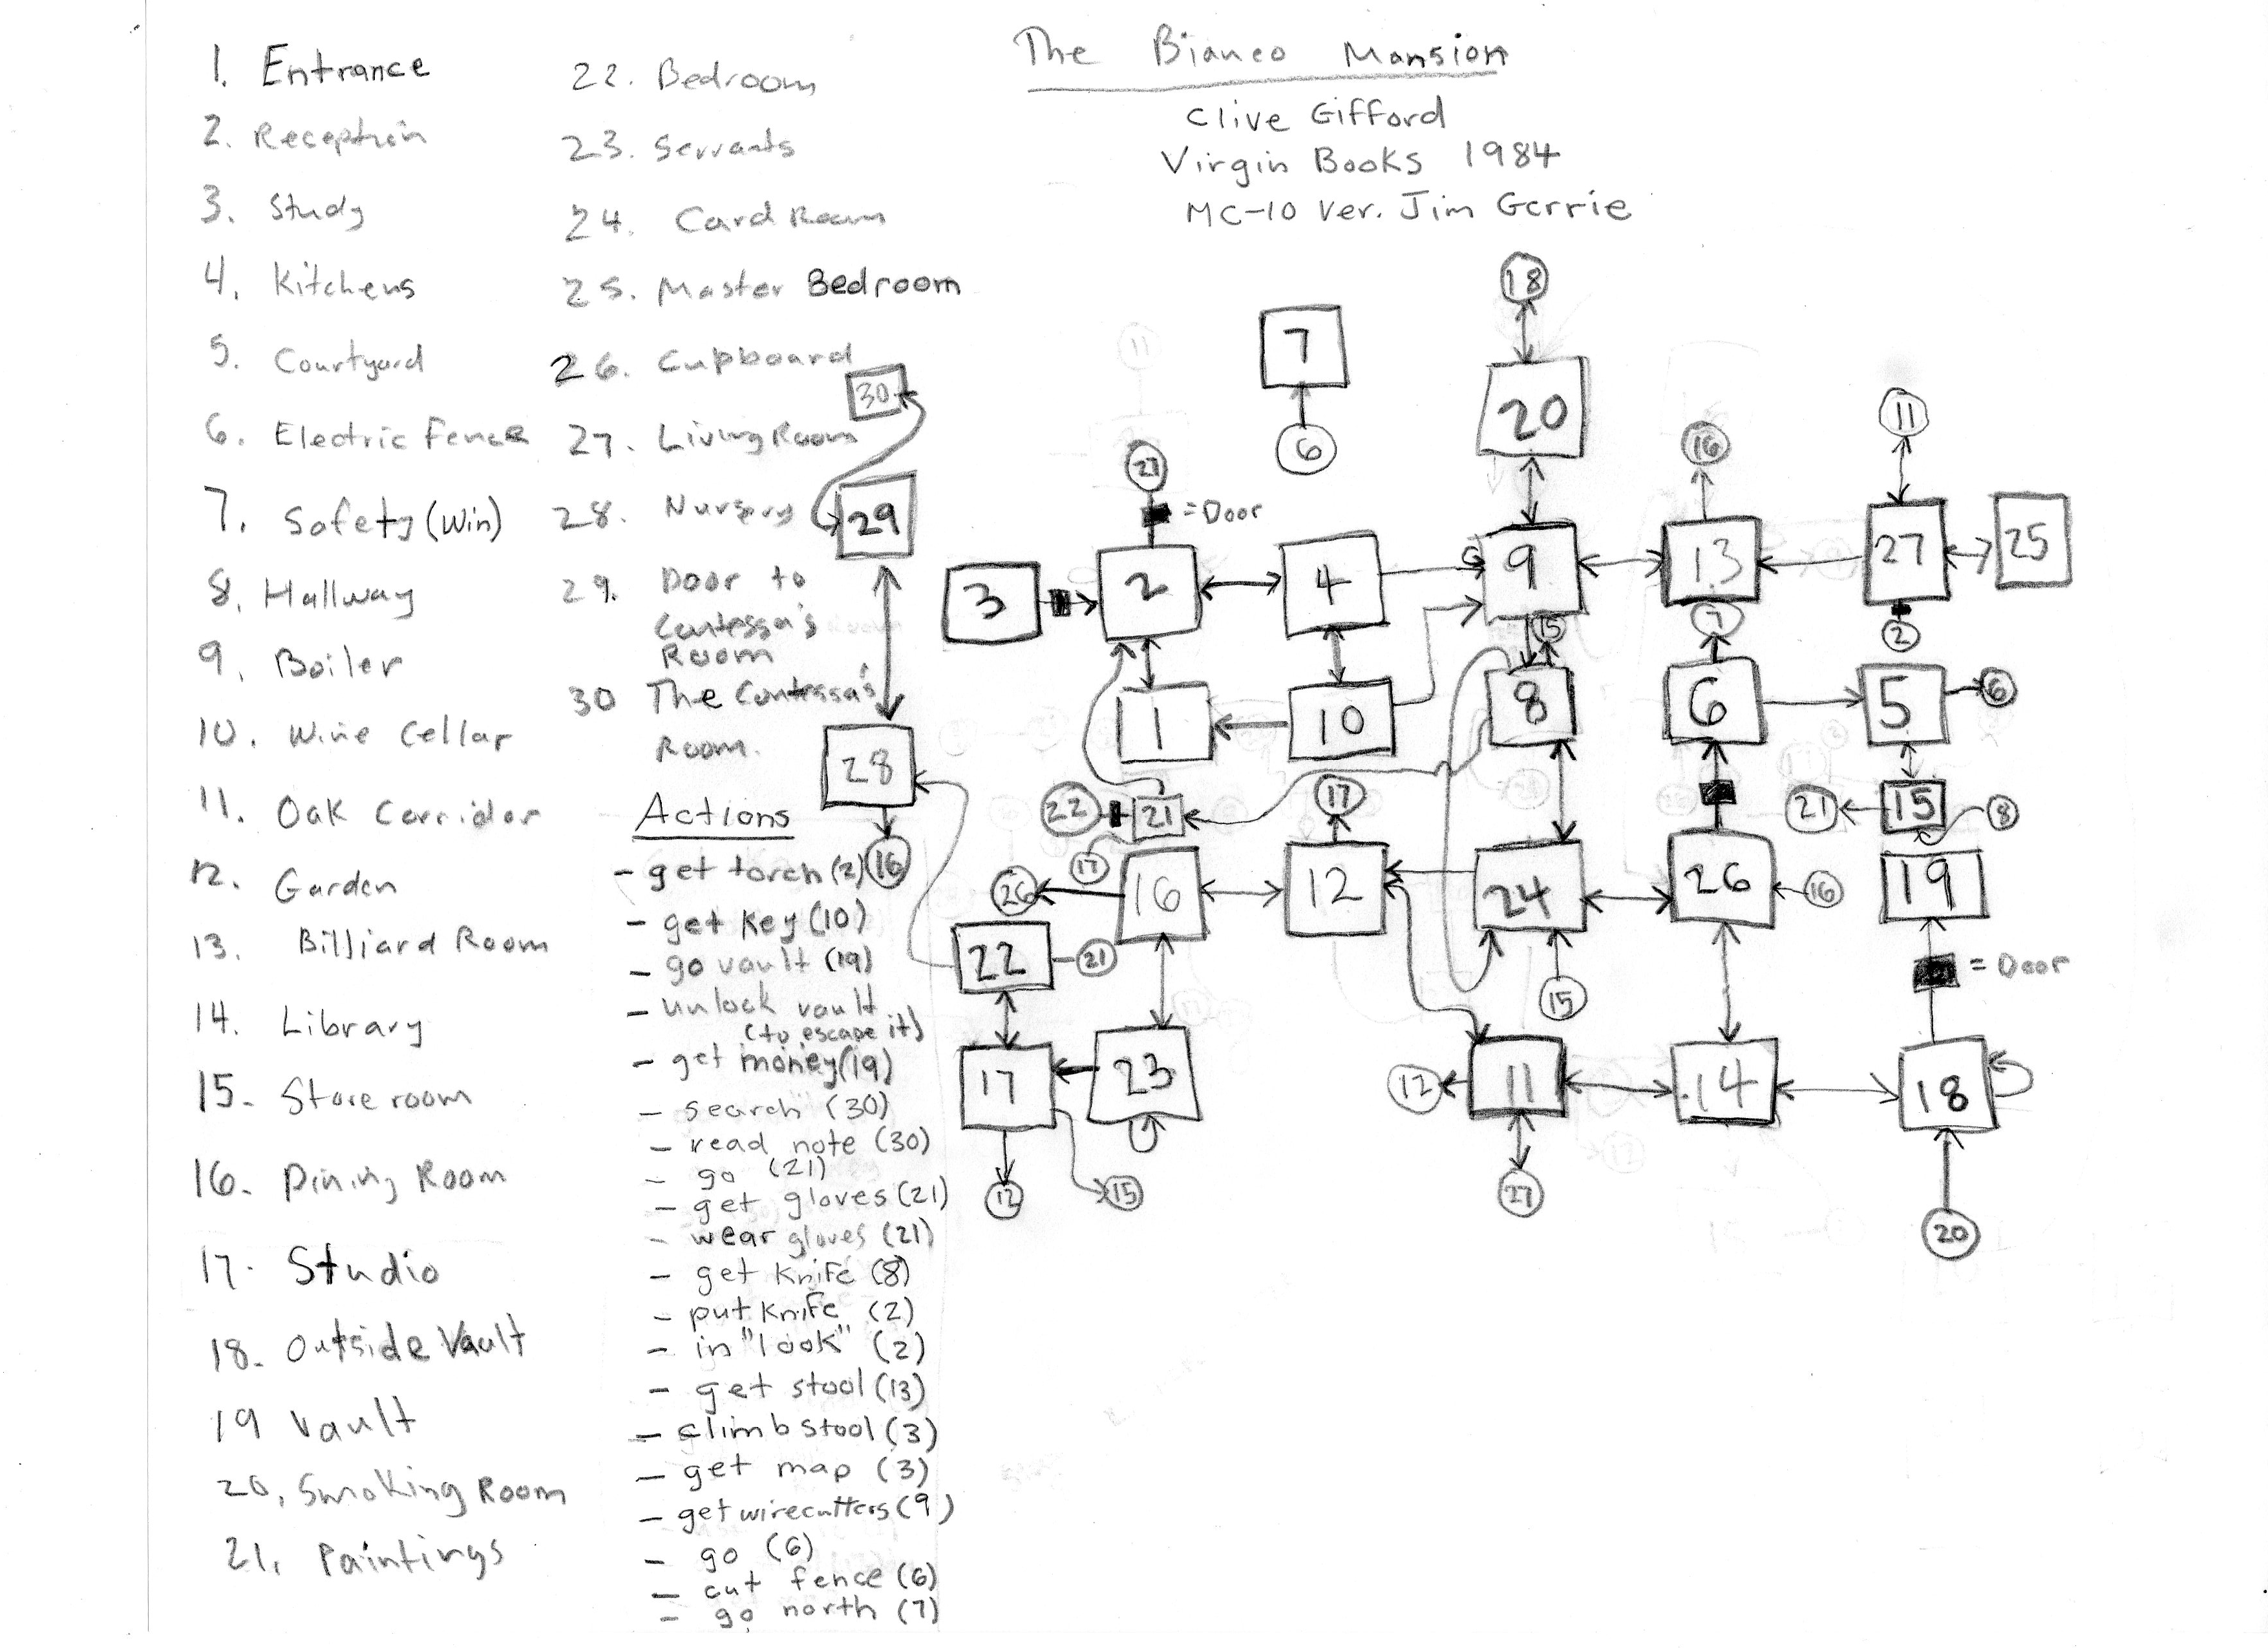 The Bianco Mansion
Clive Gifford
Virgin Books 1984
MC-10 Ver. Jim Gerrie
1. Entrance
2. Reception
3. Study
4. Kitchens
5. Courtyard
6. Electric Fence
7. Safety (Win)
8. Hallway
9. Boiler
10. Wine Cellar
11. Oak Corridor
12. Garden
13. Billiard Room
14. Library
15. Store room
16. Dining Room
17. Studio
18. Outside Vault
19 Vault
20. Smoking Room
21. Paintings
22. Bedroom
23. Servants
24. Card Room
25. Master Bedroom
26. Cupboard
27. Living Room
28. Nursery
29. Door to
Contessa's
Room
30 The Contessa's
Room.
Actions
- get torch (2)
- get key (10)
- go vault (19)
- unlock vault
(to escape it)
- get money (19)
- search (30)
- read note (30)
- go (21)
- get gloves (21)
- wear gloves (21)
- get knife (8)
- put knife (2)
- in "look" (2)
- get stool (13)
- climb stool (3)
- get map (3)
- get wirecutters (9)
- go (6)
- cut fence (6)
- go north (7)
18
7
20
11
30
6
16
27
29
= Door
3
2
4
9
13
27
25
15
7
2
1
10
8
6
5
6
28
22
21
17
21
15
8
16
17
26
16
12
24
26
16
19
22
21
15
= Door
17
23
12
11
14
18
12
15
27
20